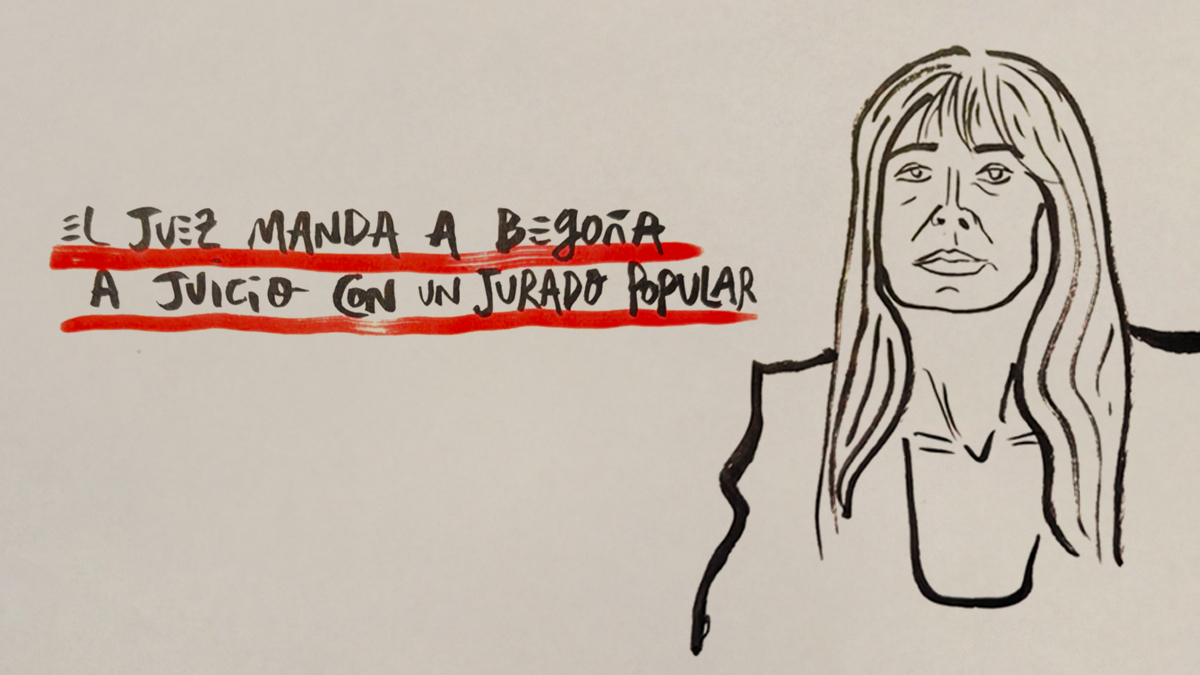 EL JUEZ MANDA A BEGOÑA
A JUICIO CON UN JURADO POPULAR